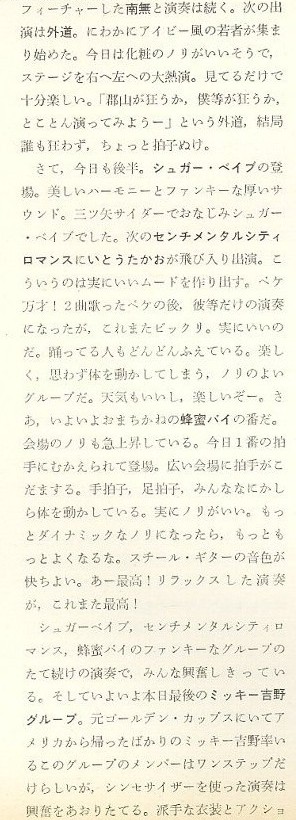 フィーチャーした南無と演奏は続く。次の出
演は外道。にわかにアイビー風の若者が集ま
り始めた。今日は化粧のノリがいいそうで，
ステージを右へ左への大熱演。見てるだけで
十分楽しい。「郡山が狂うか，僕等が狂うか，
とことん演ってみようー」という外道，結局
誰も狂わず，ちょっと拍子ぬけ。
さて，今日も後半。シュガー・ベイブの登
場。美しいハーモニーとファンキーな厚いサ
ウンド。三ツ矢サイダーでおなじみシュガー
・ベイブでした。次のセンチメンタルシティ
ロマンスにいとうたかおが飛び入り出演。こ
ういうのは実にいいムードを作り出す。ペケ
万才！２曲歌ったペケの後，彼等だけの演奏
になったが，これまたビックリ。実にいいの
だ。踊ってる人もどんどんふえている。楽し
く，思わず体を動かしてしまう，ノリのよい
グループだ。天気もいいし，楽しいぞー。さ
あ，いよいよおまちかねの蜂蜜パイの番だ。
会場のノリも急上昇している。今日１番の拍
手にむかえられて登場。広い会場に拍手がこ
だまする。手拍子，足拍子，みんななにかし
ら体を動かしている。実にノリがいい。もっ
とダイナミックなノリになったら，もっとも
っとよくなるな。スチール・ギターの音色が
快ちよい。あー最高！リラックスした演奏
が，これまた最高！
シュガーベイブ，センチメンタルシティロ
マンス，蜂蜜パイのファンキーなグループの
たて続けの演奏で，みんな興奮しきってい
る。そしていよいよ本日最後のミッキー吉野
グループ。元ゴールデン・カップスにいてア
メリカから帰ったばかりのミッキー吉野率い
るこのグループのメンバーはワンステップだ
けらしいが，シンセサイザーを使った演奏は
興奮をあおりたてる。派手な衣装とアクショ